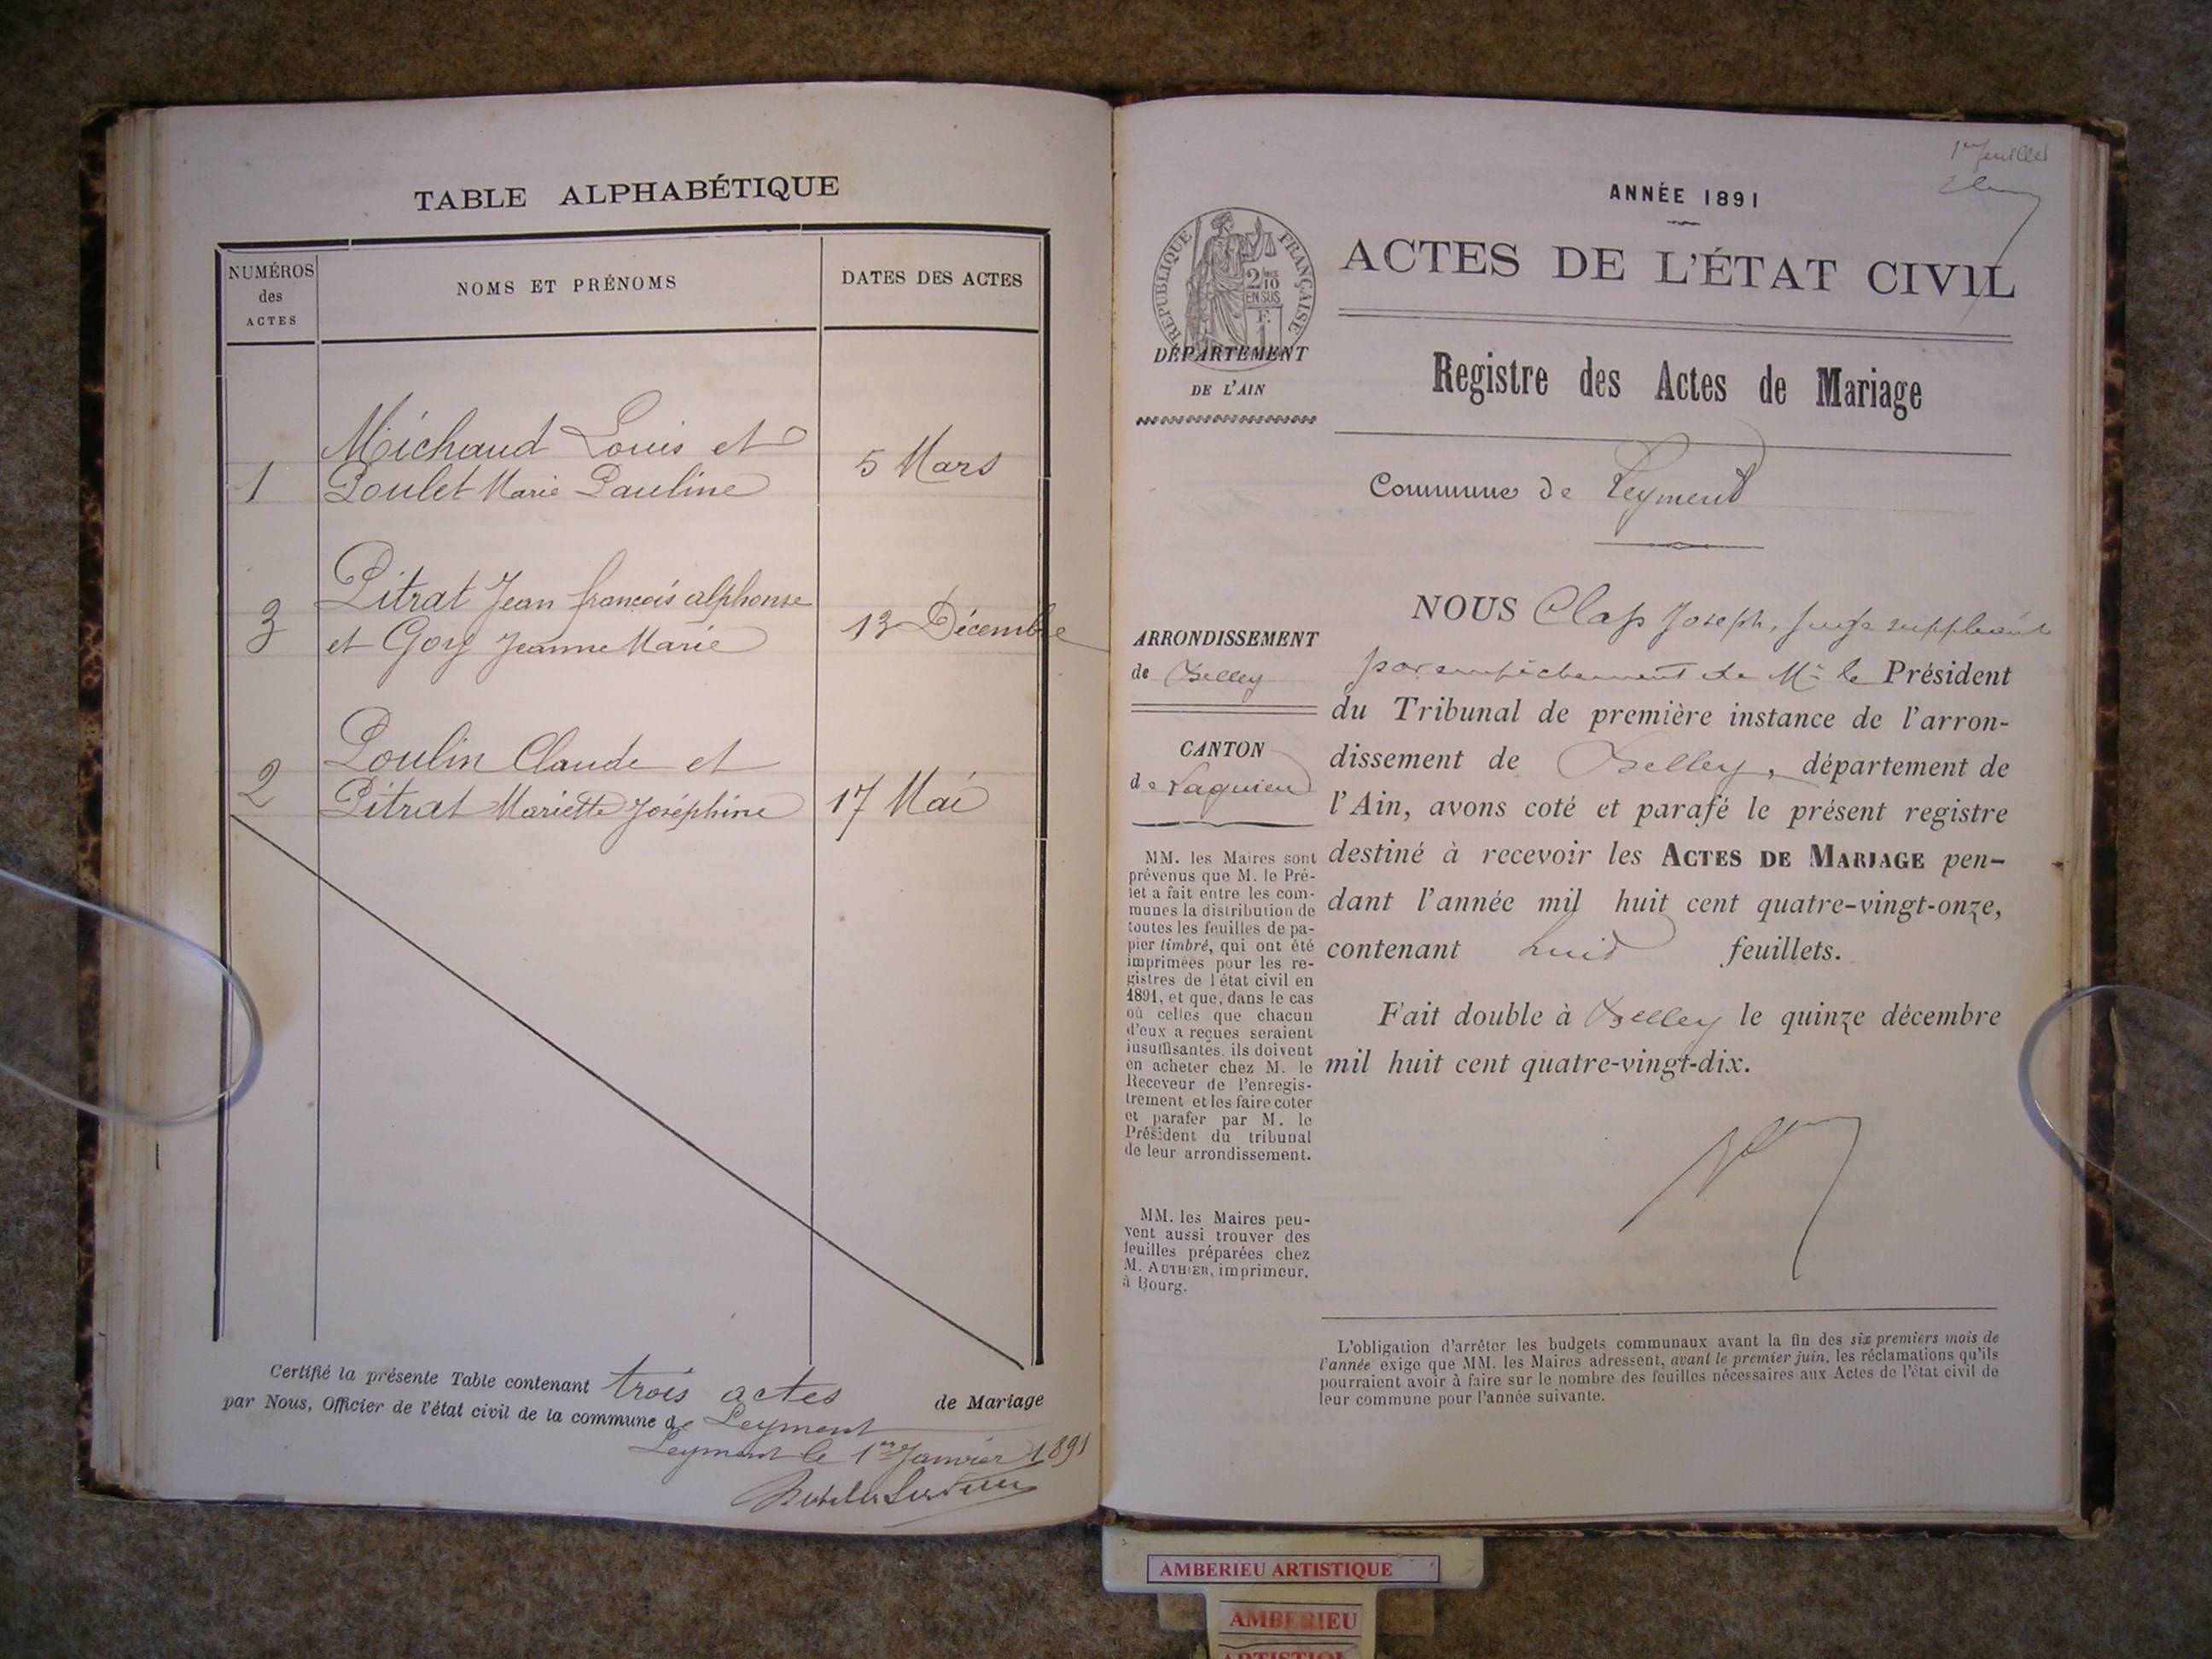 TABLE ALPHABÉTIQUE
NUMÉROS
des
ACTES
NOMS ET PRÉNOMS
DATES DES ACTES
Michaud Louis et
1 Poulet Marie Pauline 5 Mars
Pitrat Jean françois alphonse
3 et Goy Jeanne Marie 13 Décembre
Poulin Claude et
2 Pitrat Mariette Joséphine 17 Mai
Certifié la présente Table contenant trois actes de Mariage
par Nous, Officier de l'état civil de la commune de Leyment
Leyment le 1er Janvier 1891
1er feuillet
ANNÉE 1891
ACTES DE L'ÉTAT CIVIL
RÉPUBLIQUE FRANÇAISE
2/10
EN SUS
F.
1
DÉPARTEMENT
DE L'AIN
Registre des Actes de Mariage
Commune de Leyment
ARRONDISSEMENT
de Belley
CANTON
de Lagnieu
MM. les Maires sont
prévenus que M. le Pré-
fet a fait entre les com-
munes la distribution de
toutes les feuilles de pa-
pier timbré, qui ont été
imprimées pour les re-
gistres de l'état civil en
1891, et que, dans le cas
où celles que chacun
d'eux a reçues seraient
insuffisantes, ils doivent
en acheter chez M. le
Receveur de l'enregis-
trement et les faire coter
et parafer par M. le
Président du tribunal
de leur arrondissement.
MM. les Maires peu-
vent aussi trouver des
feuilles préparées chez
M. AUTHIER, imprimeur,
à Bourg.
NOUS Clap Joseph, Juge suppléant
par empêchement de Mr le Président
du Tribunal de première instance de l'arron-
dissement de Belley, département de
l'Ain, avons coté et parafé le présent registre
destiné à recevoir les ACTES DE MARIAGE pen-
dant l'année mil huit cent quatre-vingt-onze,
contenant huit feuillets.
Fait double à Belley le quinze décembre
mil huit cent quatre-vingt-dix.
L'obligation d'arrêter les budgets communaux avant la fin des six premiers mois de
l'année exige que MM. les Maires adressent, avant le premier juin, les réclamations qu'ils
pourraient avoir à faire sur le nombre des feuilles nécessaires aux Actes de l'état civil de
leur commune pour l'année suivante.
AMBERIEU ARTISTIQUE
AMBERIEU